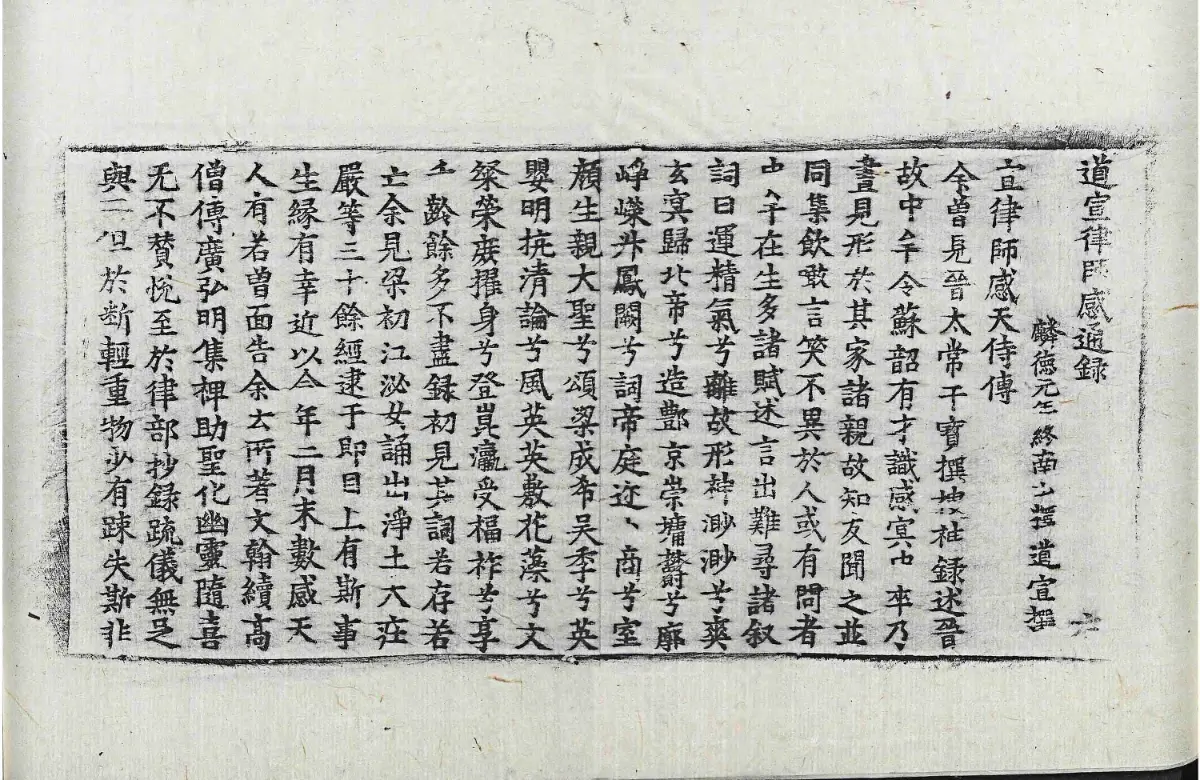 道宣律師感通録
麟德元年終南山釋道宣撰
宣律師感天侍傳
余曽見晉太常干寶撰捜神録述晉
故中牟令蘇韶有才識感冥中卒乃
晝見形於其家諸親故知友聞之並
同集飲噉言笑不異於人或有問者
中牟在生多諸賦述言出難尋諸叙
詞曰運精氣兮離故形神渺渺兮爽
玄冥歸北帝兮造酆京崇墉欝兮廓
崢嶸升鳳闕兮詞帝庭迩丶商兮室
顔生親大聖兮頌梁成希吴季兮英
嬰明抗清論兮風英英敷花藻兮文
粲榮庻擢身兮登崑瀛受福祚兮享
千齡餘多不盡録初見其詞若存若
亡余見梁初江泌女誦出淨土大莊
嚴等三十餘經逮于即目上有斯事
生縁有幸近以今年二月末數感天
人有若曽面告余云所著文翰續高
僧傳廣弘明集裨助聖化幽靈隨喜
无不賛悦至於律部抄録疏儀無足
與二但於斷輕重物少有踈失斯非